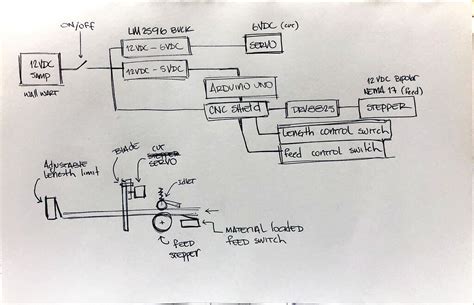 ON/OFF
LM2596 BUCK
6VDC (cut)
12VDC - 6VDC
SERVO
12VDC
5amp
WALL WART
12VDC - 5VDC
ARDUINO UNO
CNC SHIELD
DRV8825
12 VDC Bipolar
NEMA 17 (feed)
STEPPER
length control switch
feed control switch
Adjustable
length limit
BLADE
CUT
STEPPER
SERVO
Idler
FEED
STEPPER
MATERIAL LOADED
FEED SWITCH